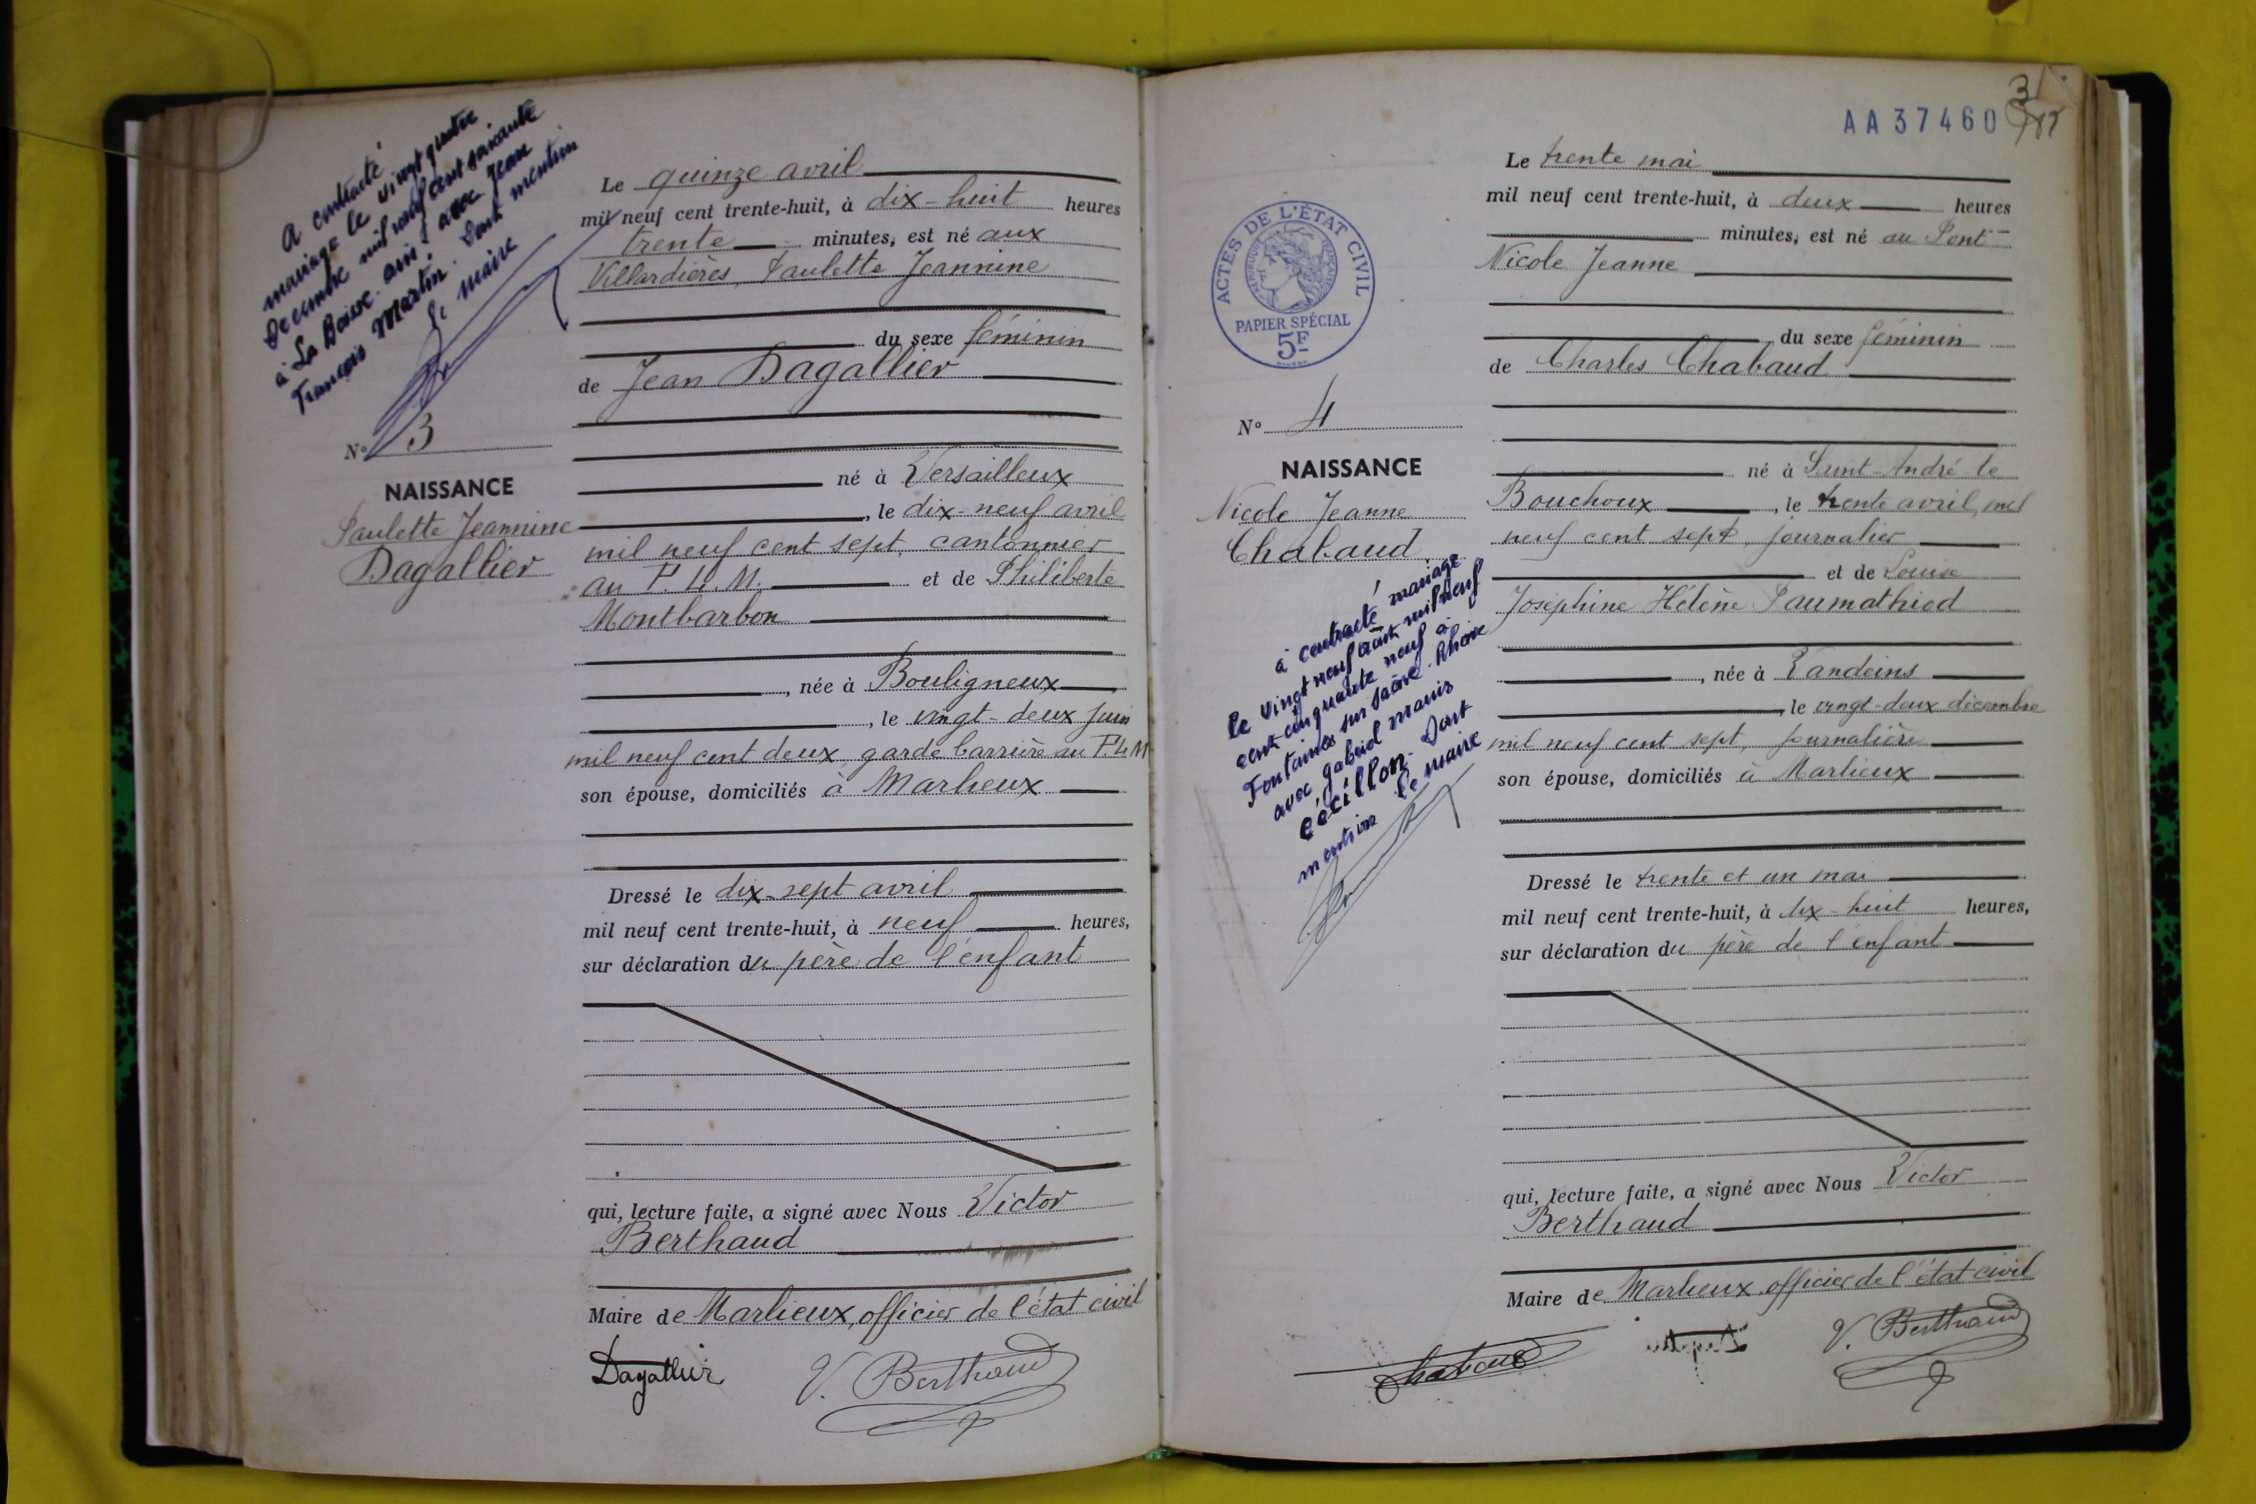 A contracté
mariage le vingt quatre
Décembre mil neuf cent soixante
à La Boisse. Ain, avec Jean
François Martin. Dont mention
Le maire
N° 3
NAISSANCE
Paulette Jeannine
Dagallier
Le quinze avril
mil neuf cent trente-huit, à dix-huit heures
trente minutes, est né aux
Villardières, Paulette Jeannine
du sexe féminin
de Jean Dagallier
né à Versailleux
, le dix-neuf avril
mil neuf cent sept, cantonnier
au P.L.M. et de Philiberte
Montbarbon
, née à Bouligneux
, le vingt-deux juin
mil neuf cent deux, garde barrière au P.L.M
son épouse, domiciliés à Marlieux
Dressé le dix-sept avril
mil neuf cent trente-huit, à neuf heures,
sur déclaration du père de l'enfant
qui, lecture faite, a signé avec Nous Victor
Berthaud
Maire de Marlieux, officier de l'état civil
Dagallier V. Berthaud
AA37460
3
ACTES DE L'ÉTAT CIVIL
PAPIER SPÉCIAL
5F
N° 4
NAISSANCE
Nicole Jeanne
Chabaud
à contracté mariage
le vingt neuf août mil neuf
cent cinquante neuf à
Fontaines sur Saône. Rhône
avec gabriel marius
Cécillon. Dont
mention Le maire
Le trente mai
mil neuf cent trente-huit, à deux heures
minutes, est né au Pont
Nicole Jeanne
du sexe féminin
de Charles Chabaud
né à Saint-André-le
Bouchoux, le trente avril mil
neuf cent sept, journalier
et de Louise
Joséphine Hélène Paumathiod
, née à Vandeins
, le vingt-deux décembre
mil neuf cent sept, journalière
son épouse, domiciliés à Marlieux
Dressé le trente et un mai
mil neuf cent trente-huit, à dix-huit heures,
sur déclaration du père de l'enfant
qui, lecture faite, a signé avec Nous Victor
Berthaud
Maire de Marlieux, officier de l'état civil
Chabaud V. Berthaud